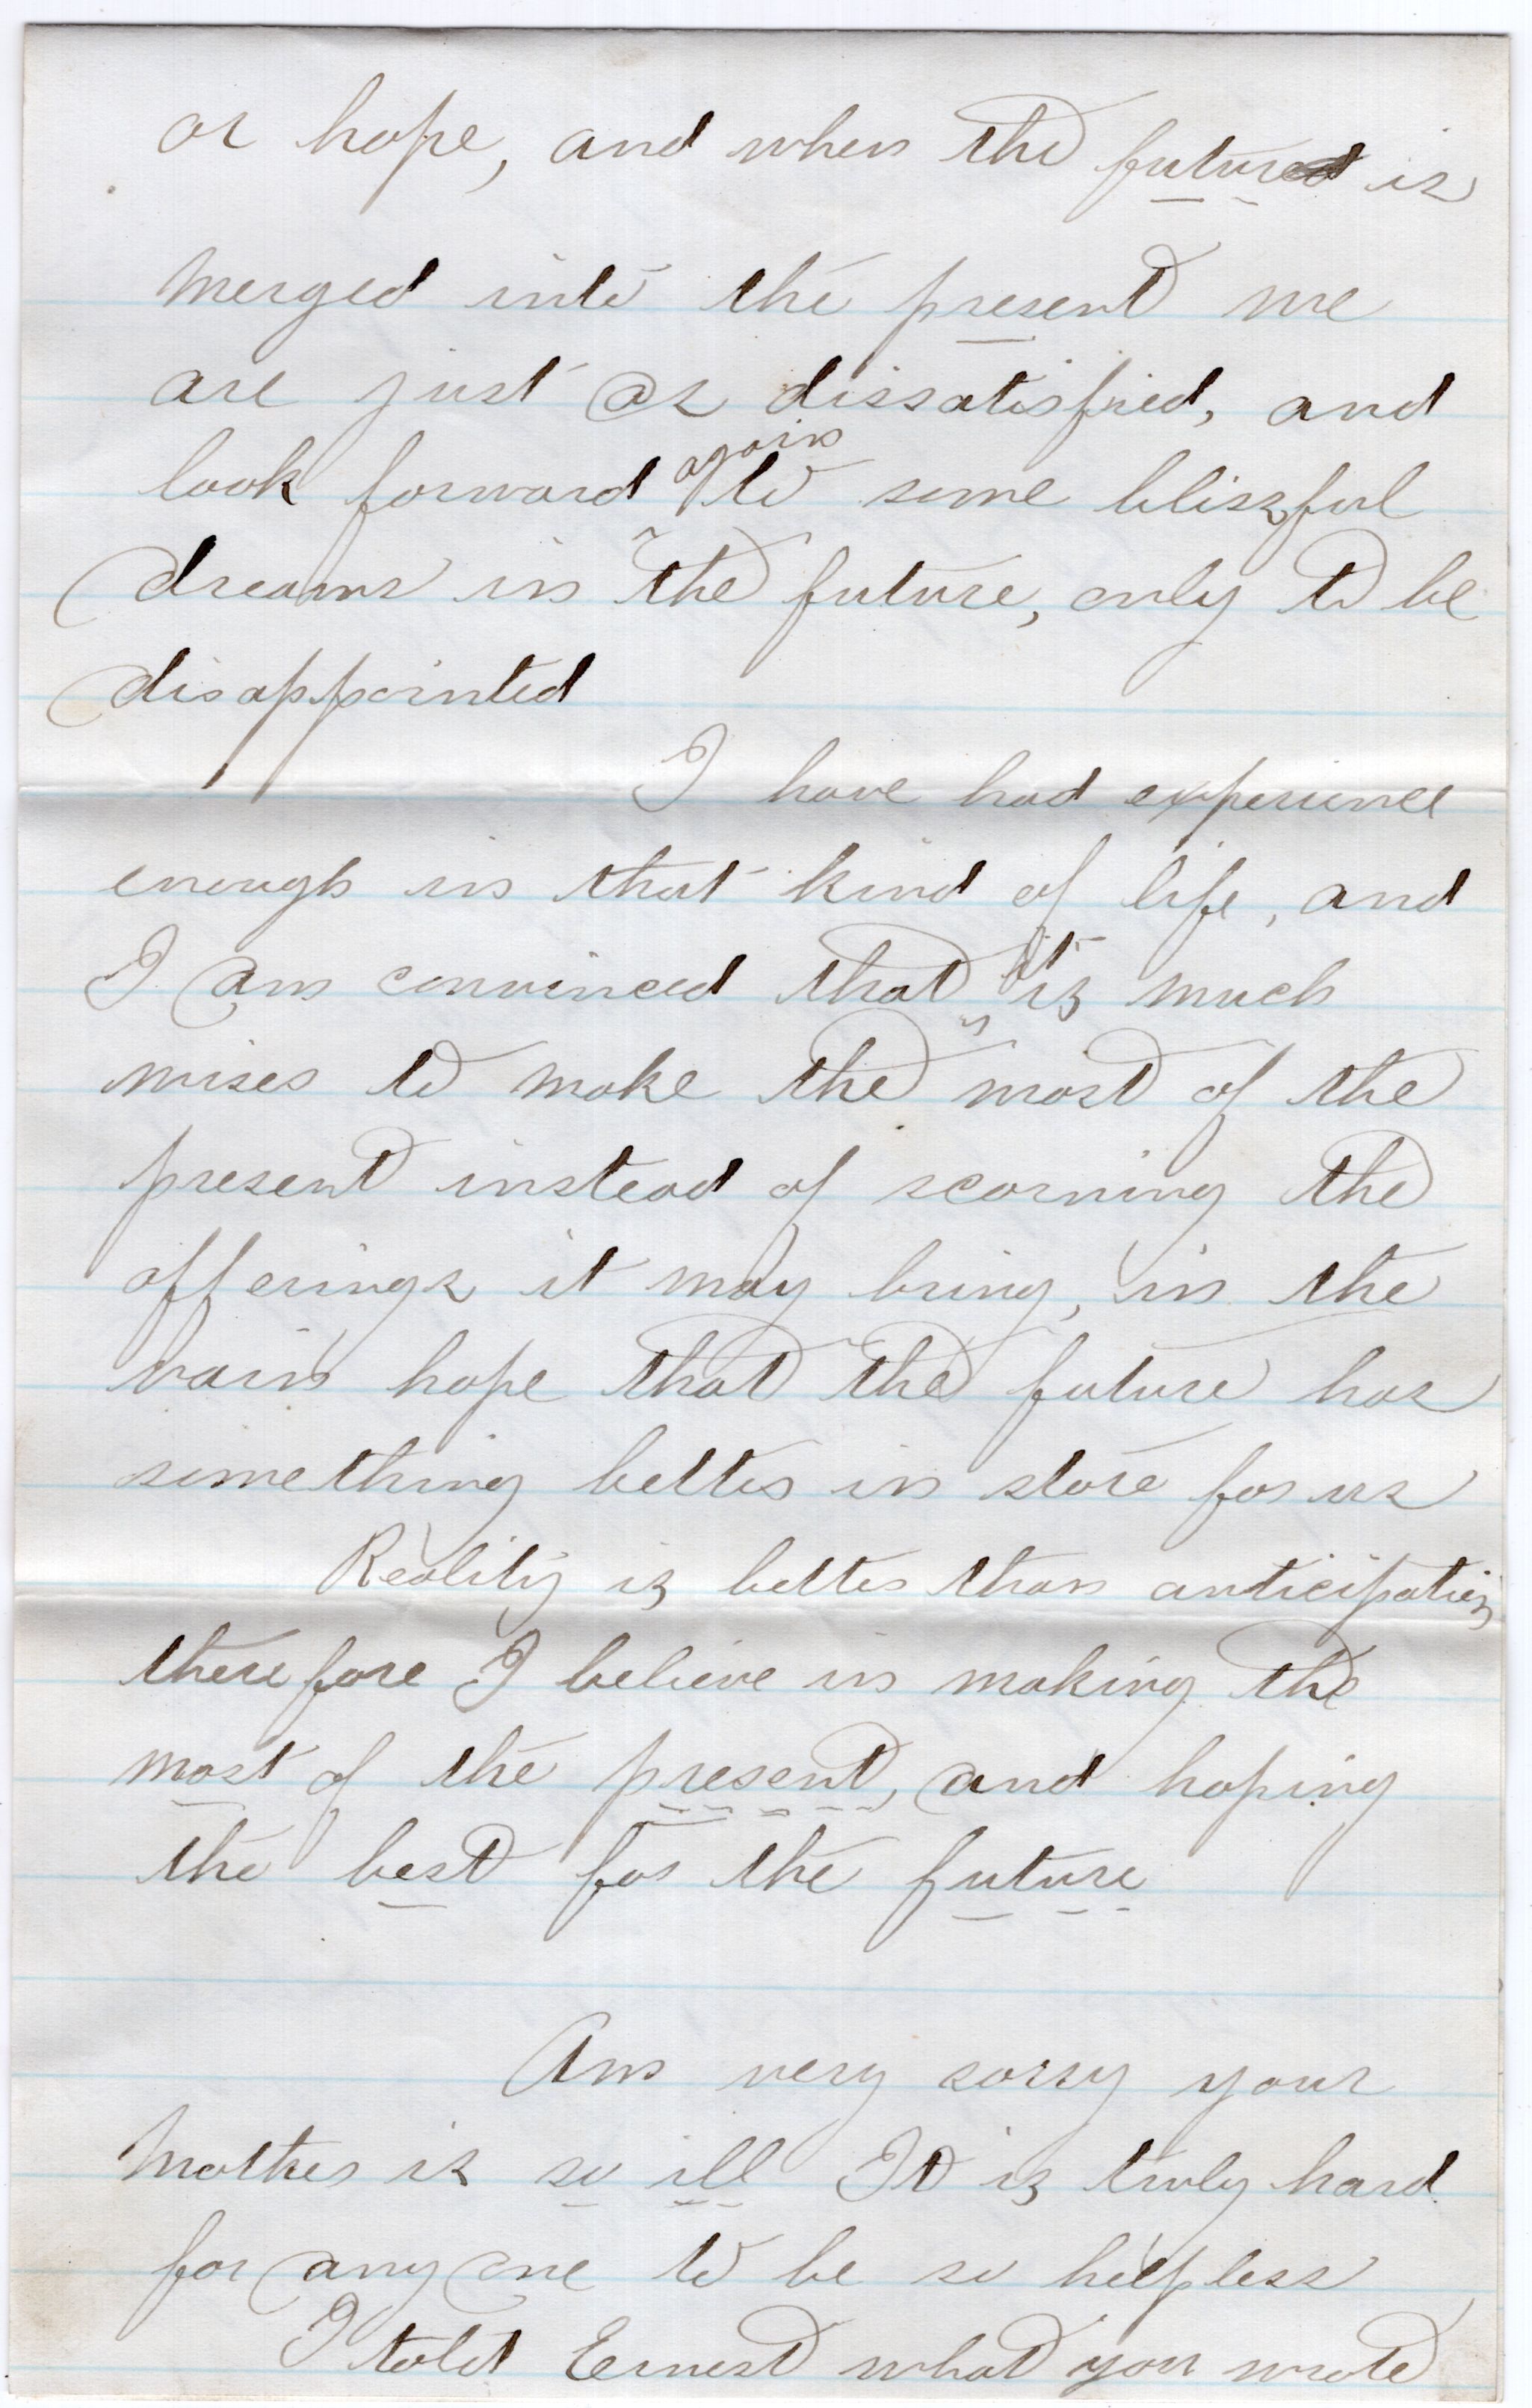 or hope, and when the future is
merged into the present we
are just as dissatisfied, and
look forward again to some blissful
dreams in the future, only to be
disappointed
I have had experience
enough in that kind of life, and
I am convinced that it is much
wiser to make the most of the
present instead of scorning the
offerings it may bring, in the
vain hope that the future has
something better in store for us
Reality is better than anticipation,
therefore I believe in making the
most of the present, and hoping
the best for the future
Am very sorry your
Mother is so ill It is truly hard
for any one to be so helpless
I told Ernest what you wrote